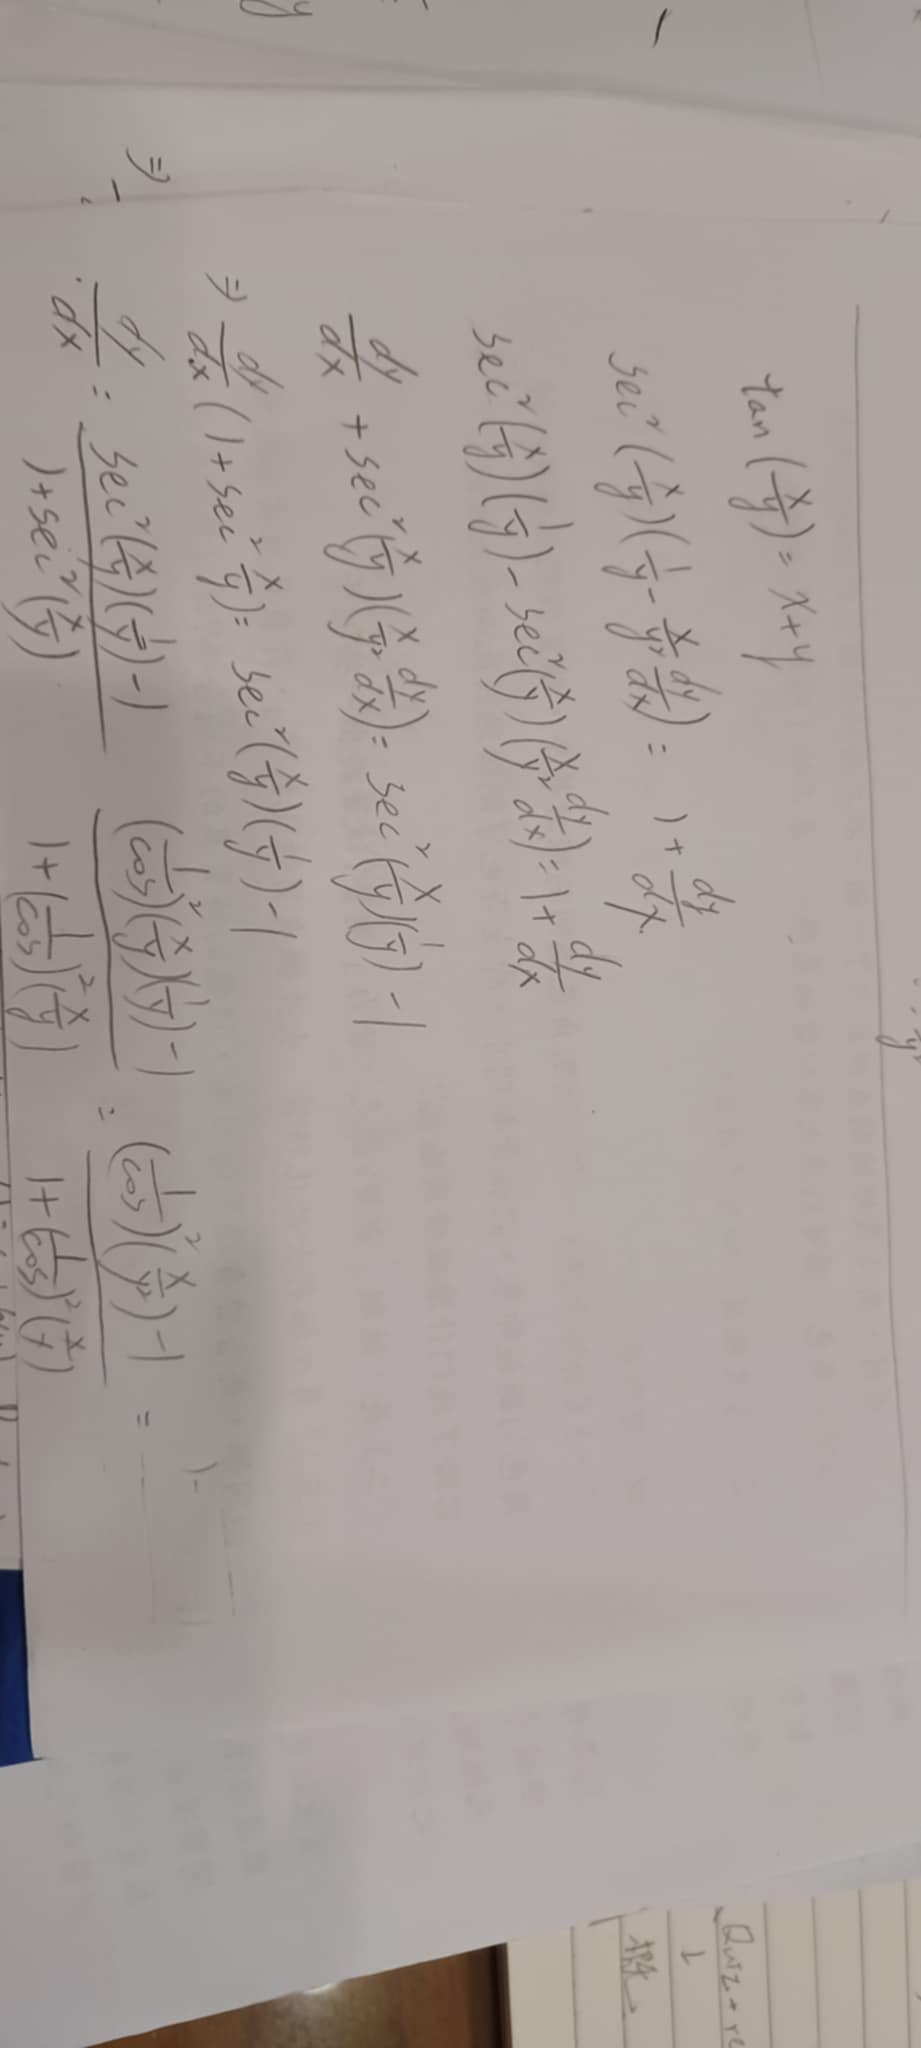 tan(x/y) = x+y
sec²(x/y)(1/y - x/y² dy/dx) = 1 + dy/dx
sec²(x/y)(1/y) - sec²(x/y)(x/y² dy/dx) = 1 + dy/dx
dy/dx + sec²(x/y)(x/y² dy/dx) = sec²(x/y)(1/y) - 1
⇒ dy/dx (1 + sec² x/y) = sec²(x/y)(1/y) - 1
⇒ dy/dx = (sec²(x/y)(1/y) - 1)/(1 + sec²(x/y)) ((1/cos)²(x/y)(1/y) - 1)/(1 + (1/cos)²(x/y)) = ((1/cos)²(x/y²) - 1)/(1 + (1/cos)²(x/y)) =
Quiz + re
1